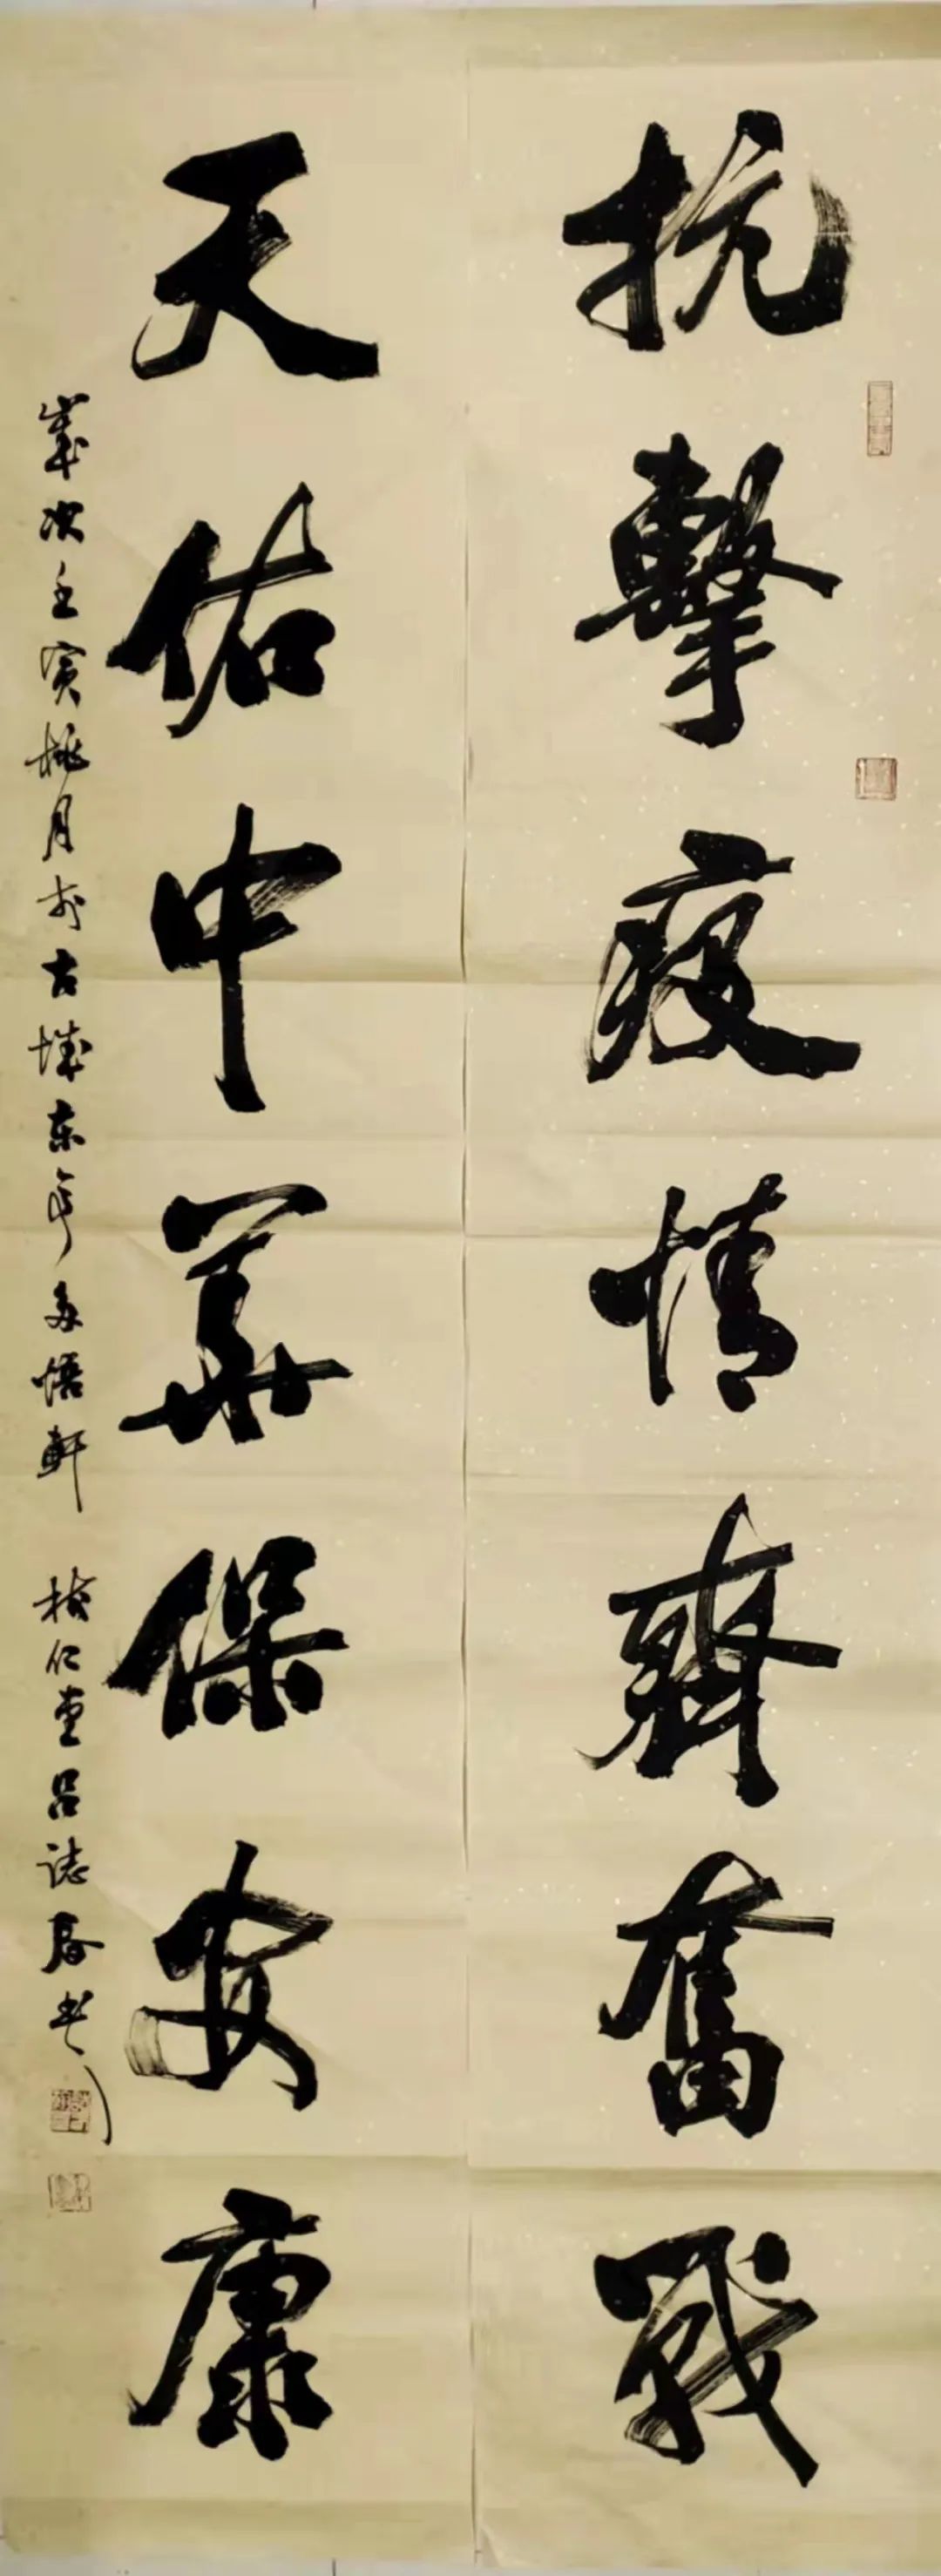 抗擊疫情齊奮戰
天佑中華保安康
歲次壬寅桃月於古城东亭無悟軒 桂仁堂吕誌春书